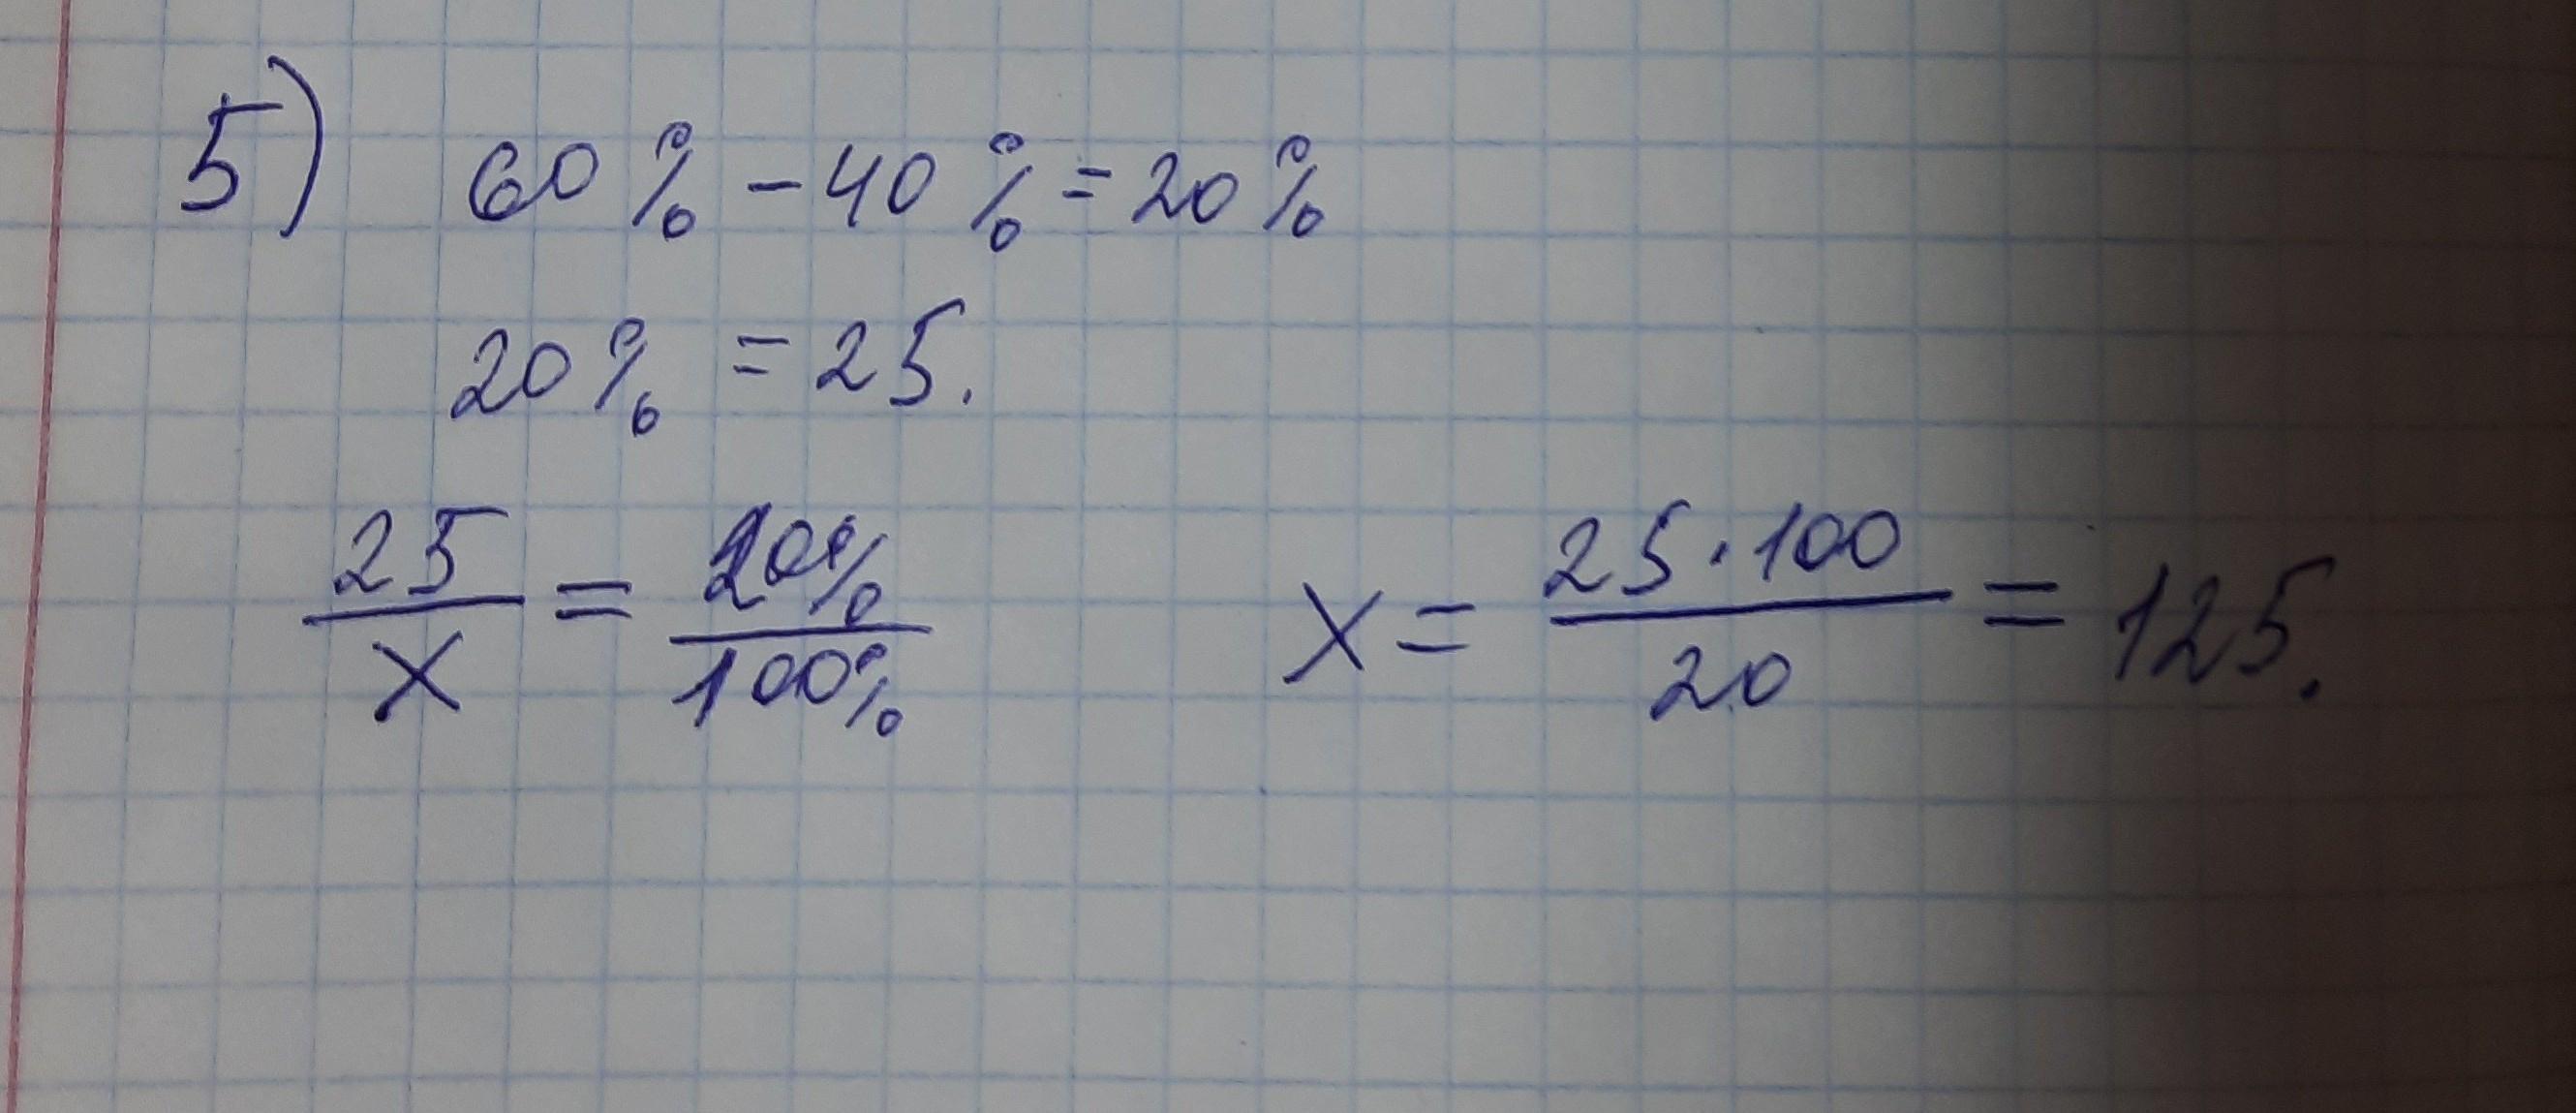 5) 60% - 40% = 20%
20% = 25.
25/x = 20%/100% x = 25·100/20 = 125.